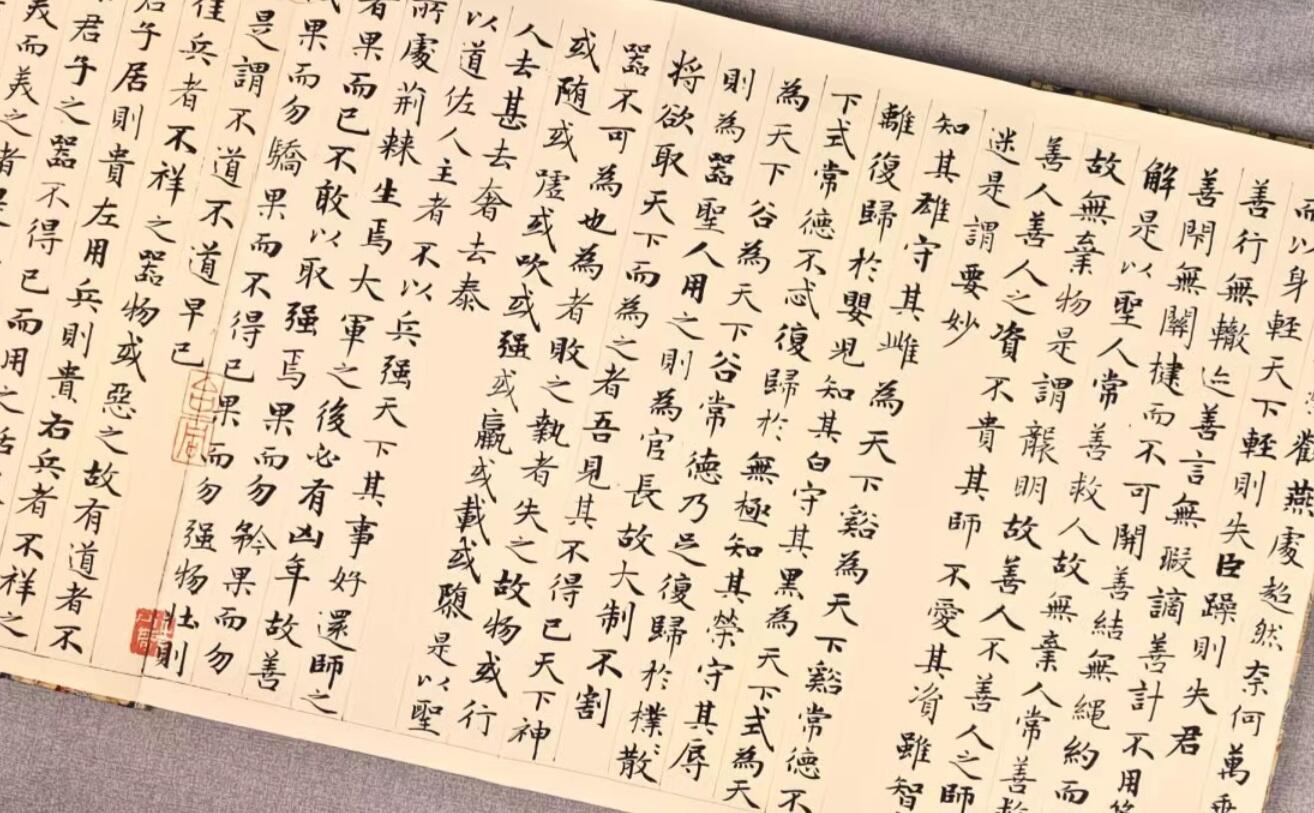 觀燕處超然奈何萬乘
而以身輕天下輕則失臣躁則失君
善行無轍迹善言無瑕謫善計不用
善閇無關楗而不可開善結無繩約而
解是以聖人常善救人故無棄人常善救
故無棄物是謂襲明故善人不善人之師
善人善人之資不貴其師不愛其資雖智
迷是謂要妙
知其雄守其雌為天下谿為天下谿常德不
離復歸於嬰兒知其白守其黑為天下式為天
下式常德不忒復歸於無極知其榮守其辱
為天下谷為天下谷常德乃足復歸於樸〻散
則為器聖人用之則為官長故大制不割
將欲取天下而為之者吾見其不得已天下神
器不可為也為者敗之執者失之故物或行
或隨或噓或吹或强或羸或載或隳是以聖
人去甚去奢去泰
以道佐人主者不以兵强天下其事好還師之
所處荊棘生焉大軍之後必有凶年故善
者果而已不敢以取强焉果而勿矜果而勿
果而勿驕果而不得已果而勿强物壯則
是謂不道不道早已
佳兵者不祥之器物或惡之故有道者不
君子居則貴左用兵則貴右兵者不祥之
君子之器不得已而用之恬
美而美之者是